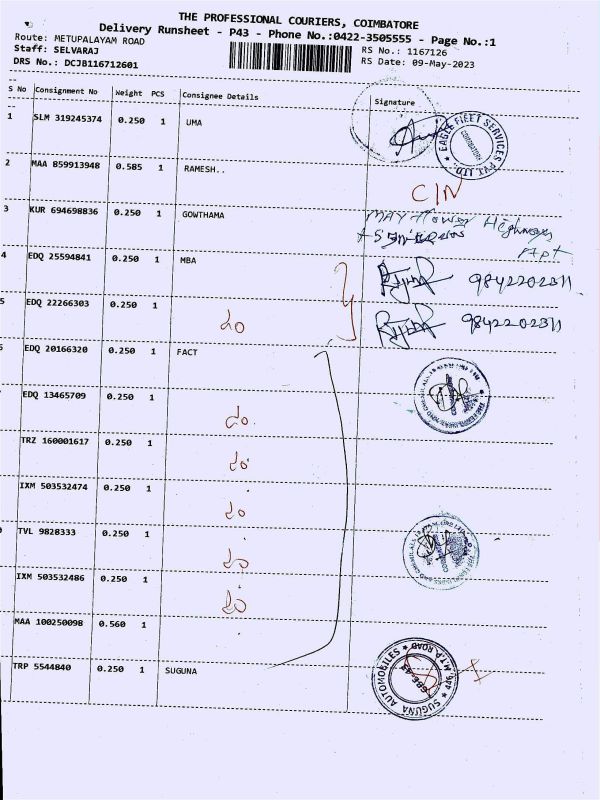 THE PROFESSIONAL COURIERS, COIMBATORE
Delivery Runsheet - P43 - Phone No.:0422-3505555 - Page No.:1
Route: METUPALAYAM ROAD
RS No.: 1167126
Staff: SELVARAJ
RS Date: 09-May-2023
DRS No.: DCJB116712601
S No Consignment No Weight PCS Consignee Details Signature
1 SLM 319245374 0.250 1 UMA
EAGLE FLEET SERVICES PVT LTD.
2 MAA 859913948 0.585 1 RAMESH..
C/N
3 KUR 694698836 0.250 1 GOWTHAMA
May flower Highways
Apt
4 EDQ 25594841 0.250 1 MBA 9842202311
5 EDQ 22266303 0.250 1 9842202311
EDQ 20166320 0.250 1 FACT
EDQ 13465709 0.250 1
TRZ 160001617 0.250 1
IXM 503532474 0.250 1
TVL 9828333 0.250 1
IXM 503532486 0.250 1
MAA 100250098 0.560 1
TRP 5544840 0.250 1 SUGUNA
SUGUNA AUTOMOBILES * M.T.P. ROAD *